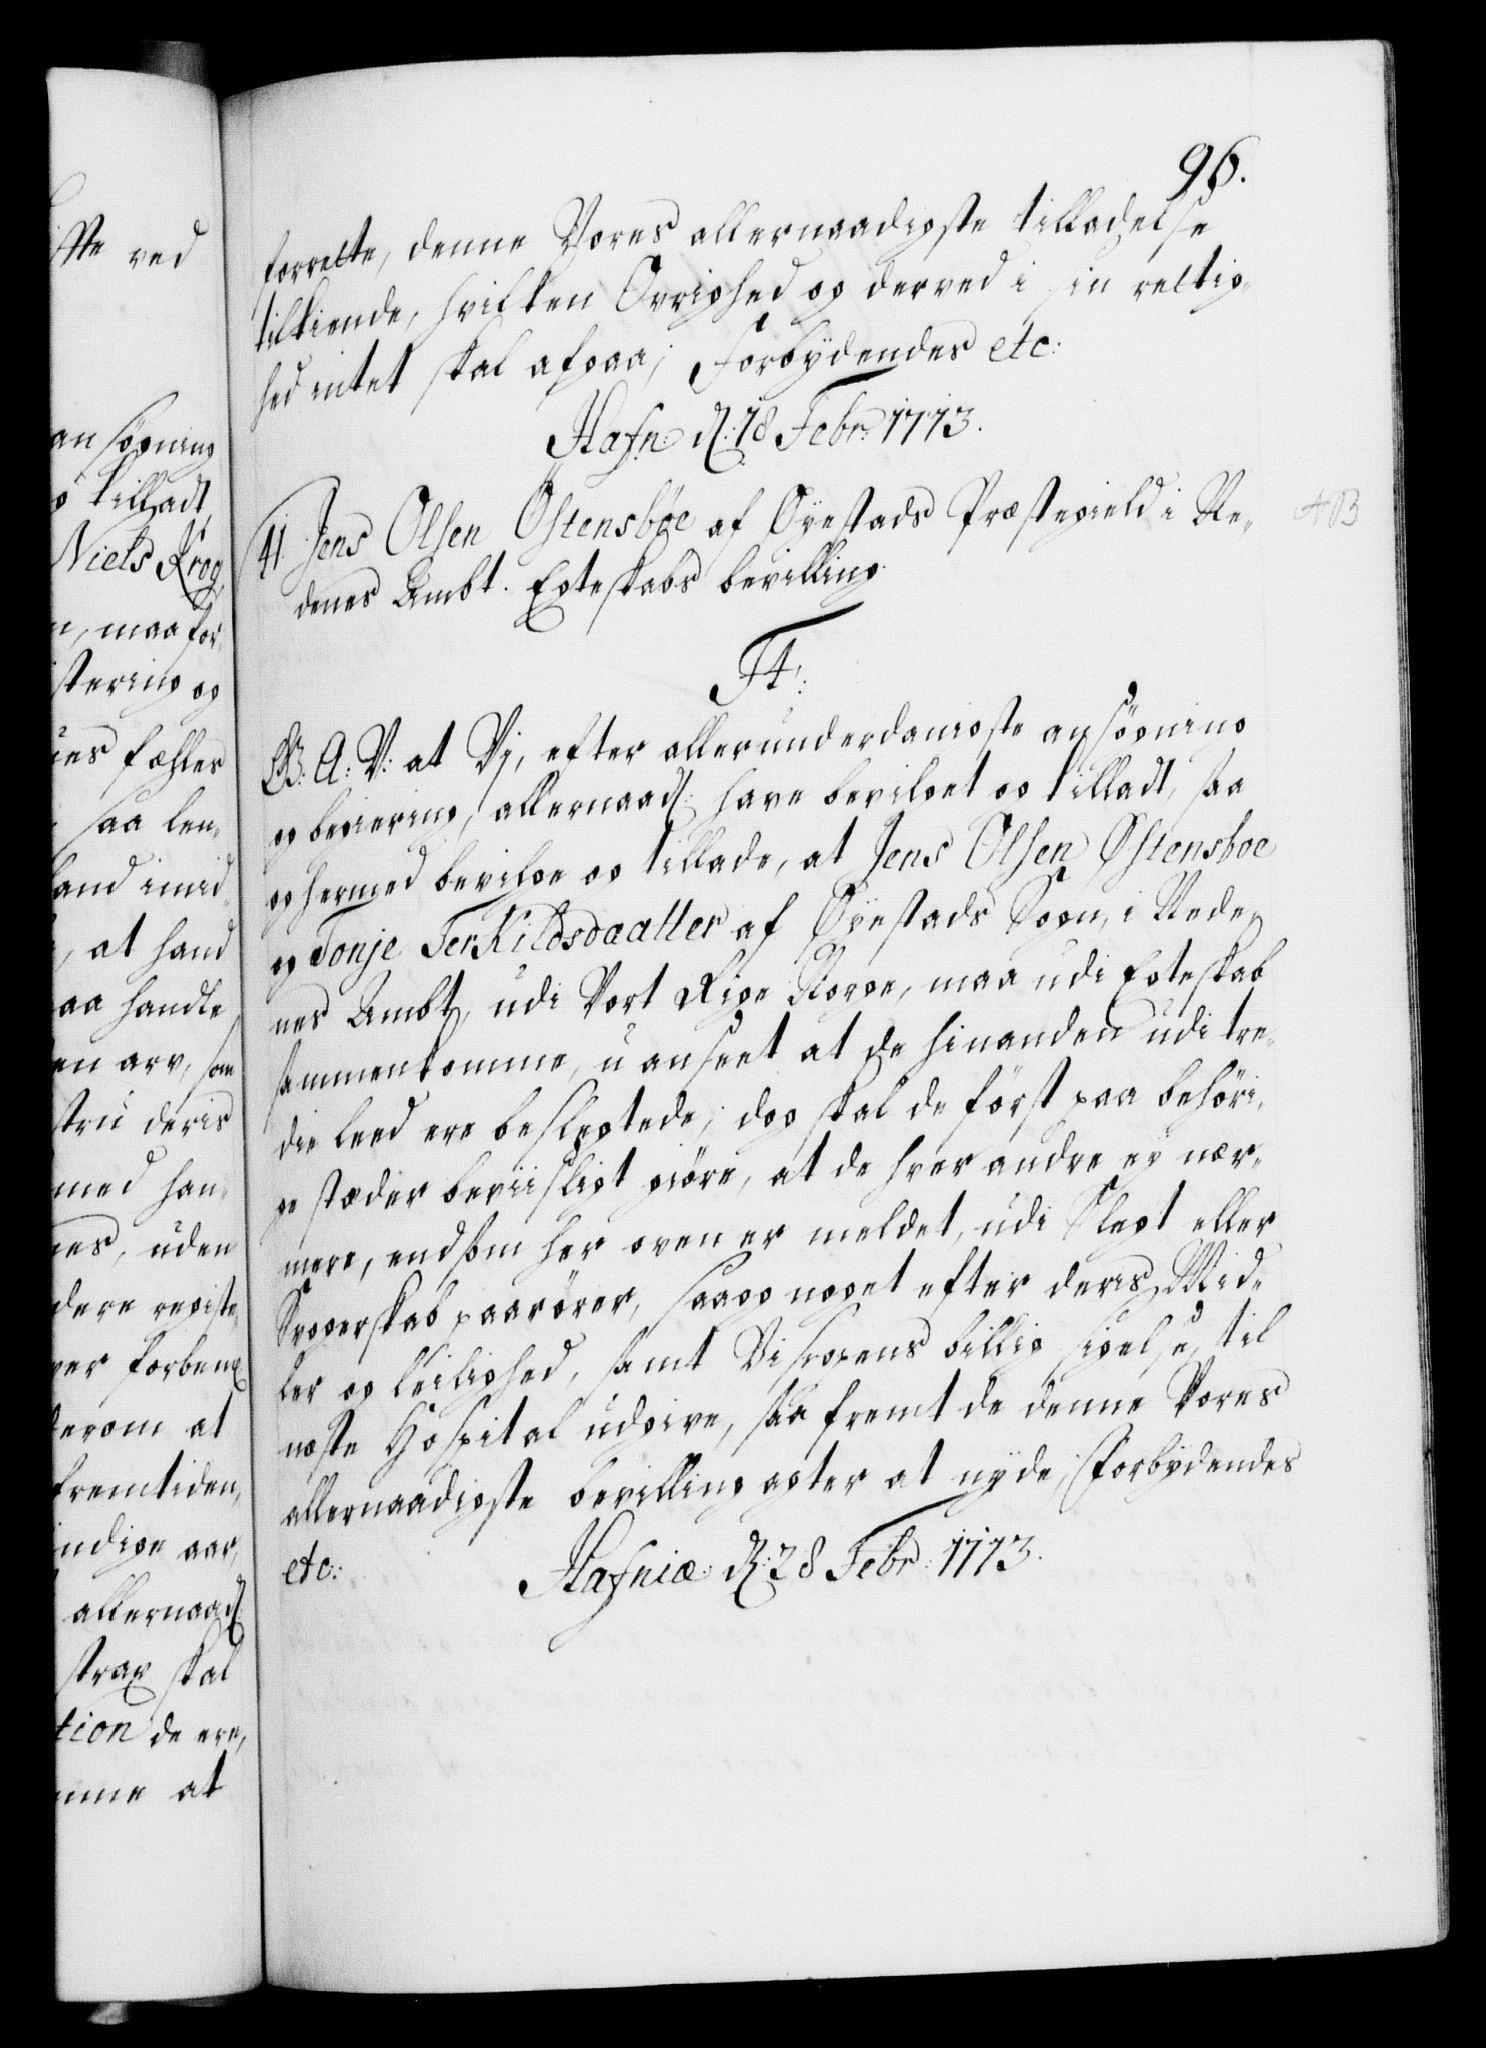 96.
forrette, denne Vores allernaadigste tilladelse
tilkiende, hvilken Øvrighed og derved i sin rettig-
hed intet skal afgaa; Forbydendes etc:
Hafn: d: 18 Febr: 1773.
41. Jens Olsen Østensbøe af Øyestads Præstegield i Ne-
denes Ambt. Egteskabs bevilling.
F4:
G: A: V: at Vj, efter allerunderdanigste ansögning
og begiering, allernaad: have bevilget og tilladt, saa
og hermed bevilge og tillade, at Jens Olsen Østensboe
og Tonje TerKildsdaatter af Øyestads Sogn, i Nede-
nes Ambt, udi Vort Rige Norge, maa udi Egteskab
sammenkomme, uanseet at de hinanden udi tre-
die leed ere beslegtede; dog skal de först paa behöri-
ge stæder beviisligt giöre, at de hver andre ey nær-
mere, end som her oven er meldet, udi Slegt eller
Svogerskab paarörer, saa og noget efter deris Mid-
ler og leilighed, samt Biscopens billig sigelse, til
neste Hospital udgive, saa fremt de denne Vores
allernaadigste bevilling agter at nyde; Forbydendes
etc: Hafniæ: d: 28 Febr: 1773.
ved
ansögning
tilladt
Niels Krog
maa for-
og
fæhles
saa len-
imid-
at hand
handle
arv, som
deris
med han-
uden
dere registe-
at
fremtiden,
aar,
allernaad:
strax skal
tion de ere,
at